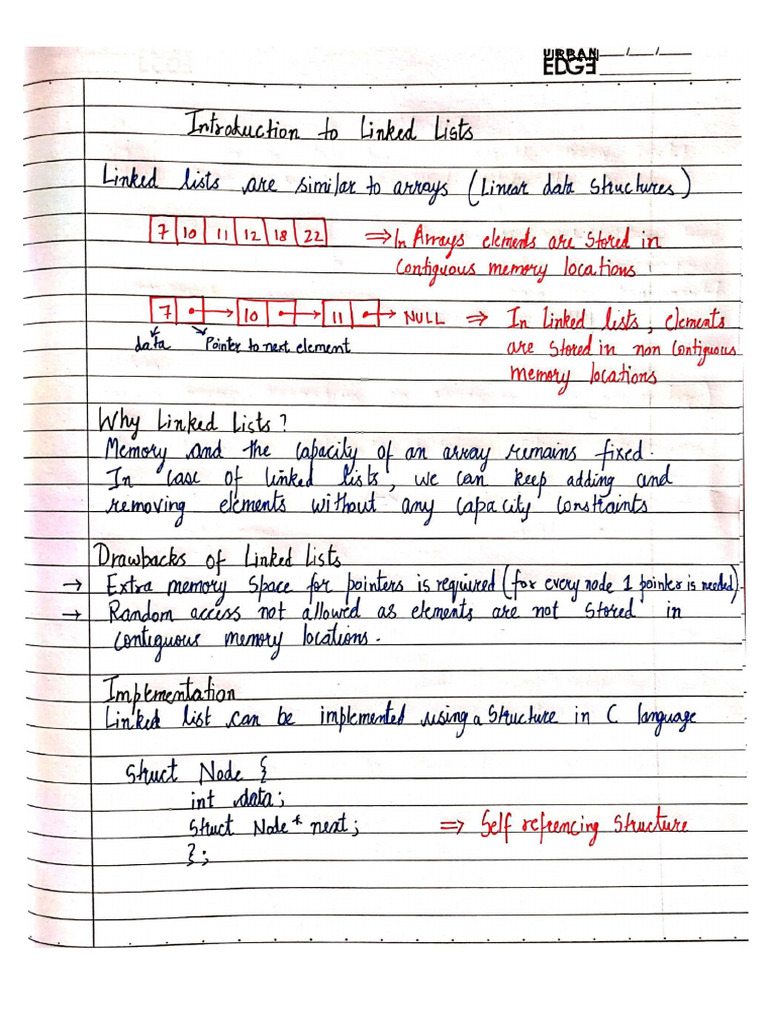 URBAN EDGE
Introduction to Linked Lists
Linked lists are similar to arrays (Linear data structures)
7 10 11 12 18 22 ⇒ In Arrays elements are stored in
contiguous memory locations
7 10 11 NULL ⇒ In linked lists, elements
data Pointer to next element are stored in non contiguous
memory locations
Why Linked Lists?
Memory and the capacity of an array remains fixed.
In case of linked lists, we can keep adding and
removing elements without any capacity constraints
Drawbacks of Linked Lists
→ Extra memory space for pointers is required (for every node 1 pointer is needed).
→ Random access not allowed as elements are not stored in
contiguous memory locations.
Implementation
Linked list can be implemented using a structure in C language
struct Node {
int data;
struct Node* next; ⇒ Self refrencing structure
};